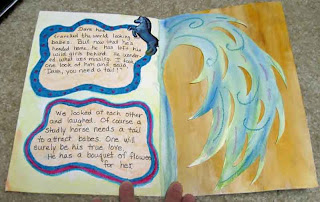 Dark
searched the world looking
babes. But now that he's
headed home, he has left his
wild girls behind. He wonder-
ed what was missing. I took
one look at him and said,
"Dam, you need a tail!"
We looked at each other
and laughed. Of course a
studly horse needs a tail
to attract babes. One will
surely be his true love.
He has a bouquet of flowers
for her.